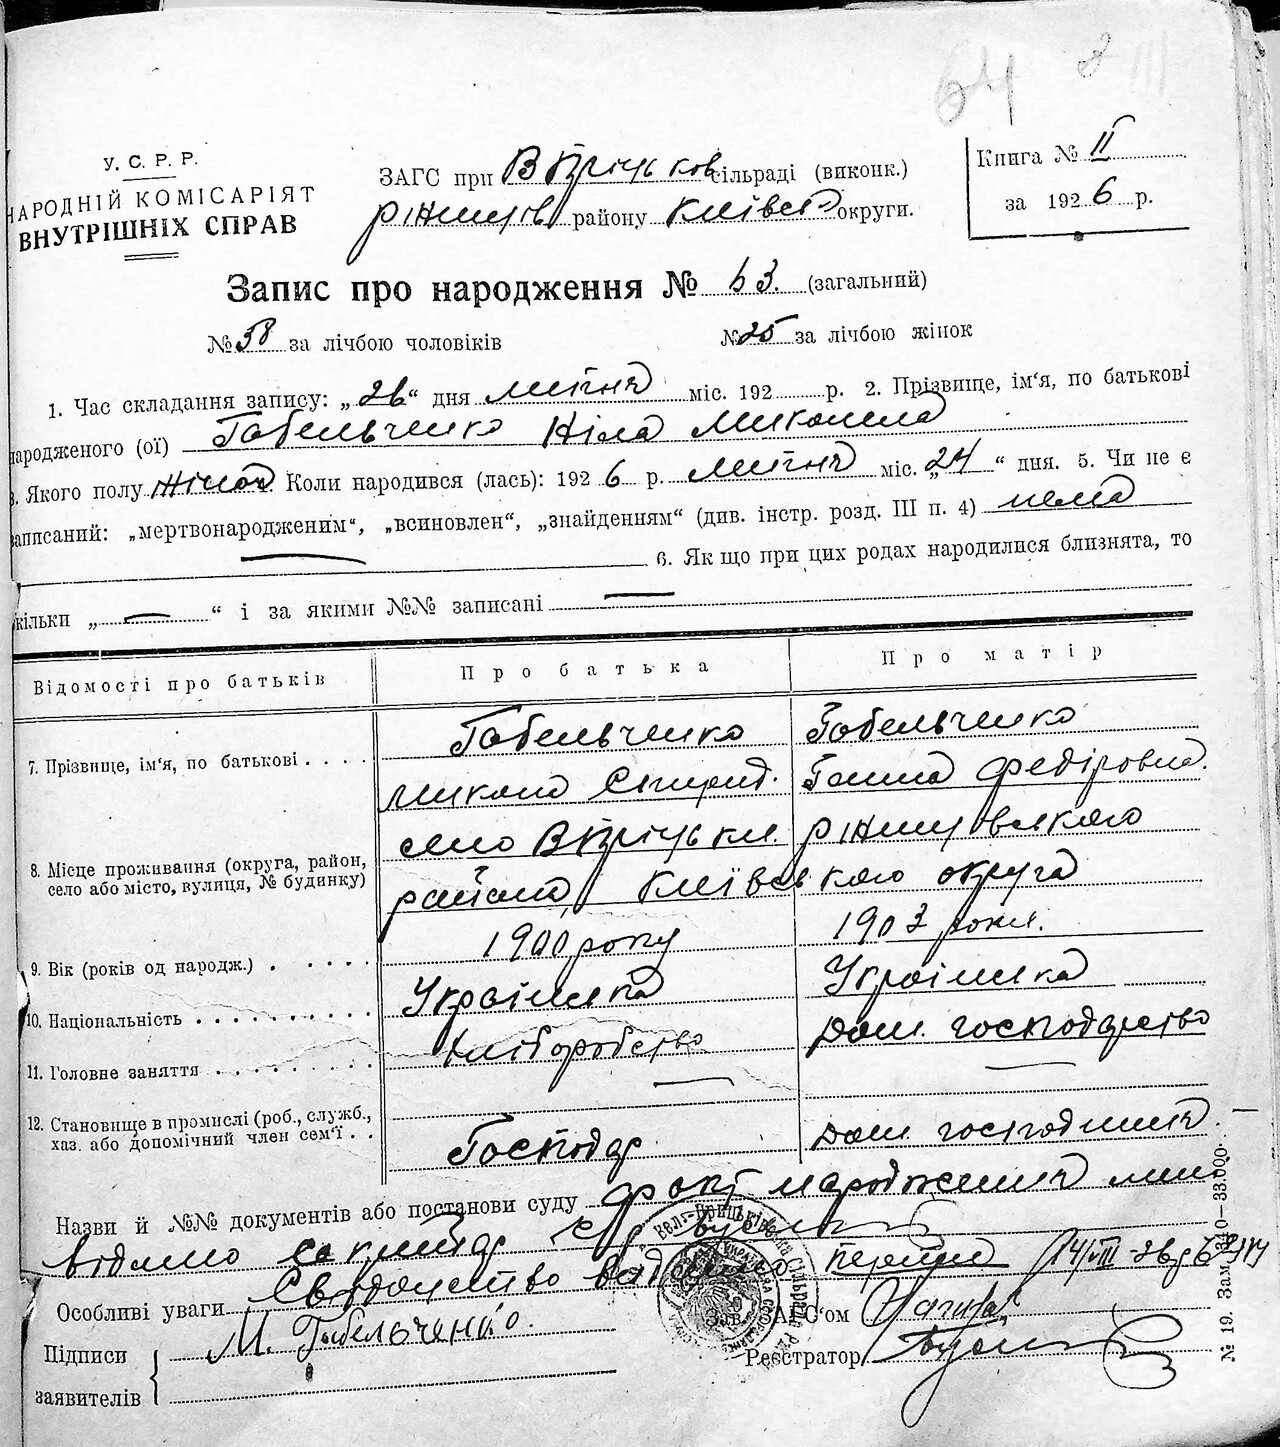 64
У. С. Р. Р.
НАРОДНІЙ КОМІСАРІЯТ
ВНУТРІШНІХ СПРАВ
ЗАГС при В Пріцьков сільраді (виконк.)
ржищів району Київсь округи.
Книга № II
за 1926 р.
Запис про народження № 63. (загальний)
№ 38 за лічбою чоловіків
№ 25 за лічбою жінок
1. Час складання запису: „26“ дня липня міс. 192 р. 2. Прізвище, ім‘я, по батькові
народженого (ої) Габельченко Ніла Миколаєва
3. Якого полу жіноч. Коли народився (лась): 1926 р. липня міс. „24“ дня. 5. Чи не є
записаний: „мертвонародженим“, „всиновлен“, „знайденням“ (див. інстр. розд. III п. 4) нема
6. Як що при цих родах народилися близнята, то
скільки „ — “ і за якими №№ записані —
Відомості про батьків
Про батька
Про матір
7. Прізвище, ім‘я, по батькові . . . .
Габельченко
Микола Спирид.
Габельченко
Ганна Федіровна.
8. Місце проживання (округа, район,
село або місто, вулиця, № будинку)
село В Пріцьки. ржищівського
района Київського округа
9. Вік (років од народж.) . . . . .
1900 року
1903 року.
10. Національність . . . . . . . . . .
Українка
Українка
11. Головне заняття . . . . . . . . .
хліборобство
Дом. господарство
12. Становище в промислі (роб., служб.,
хаз. або допомічний член сем‘ї . .
Господар
Дом. господиня
Назви й №№ документів або постанови суду факт народження мині
відомо секритар
Особливі уваги Свідоцтво видано перше 14/VIII
Підписи
заявителів
М. Габельченко.
Зав. ЗАГС‘ом
Реєстратор
№ 19. Зам. 3440—33.000.